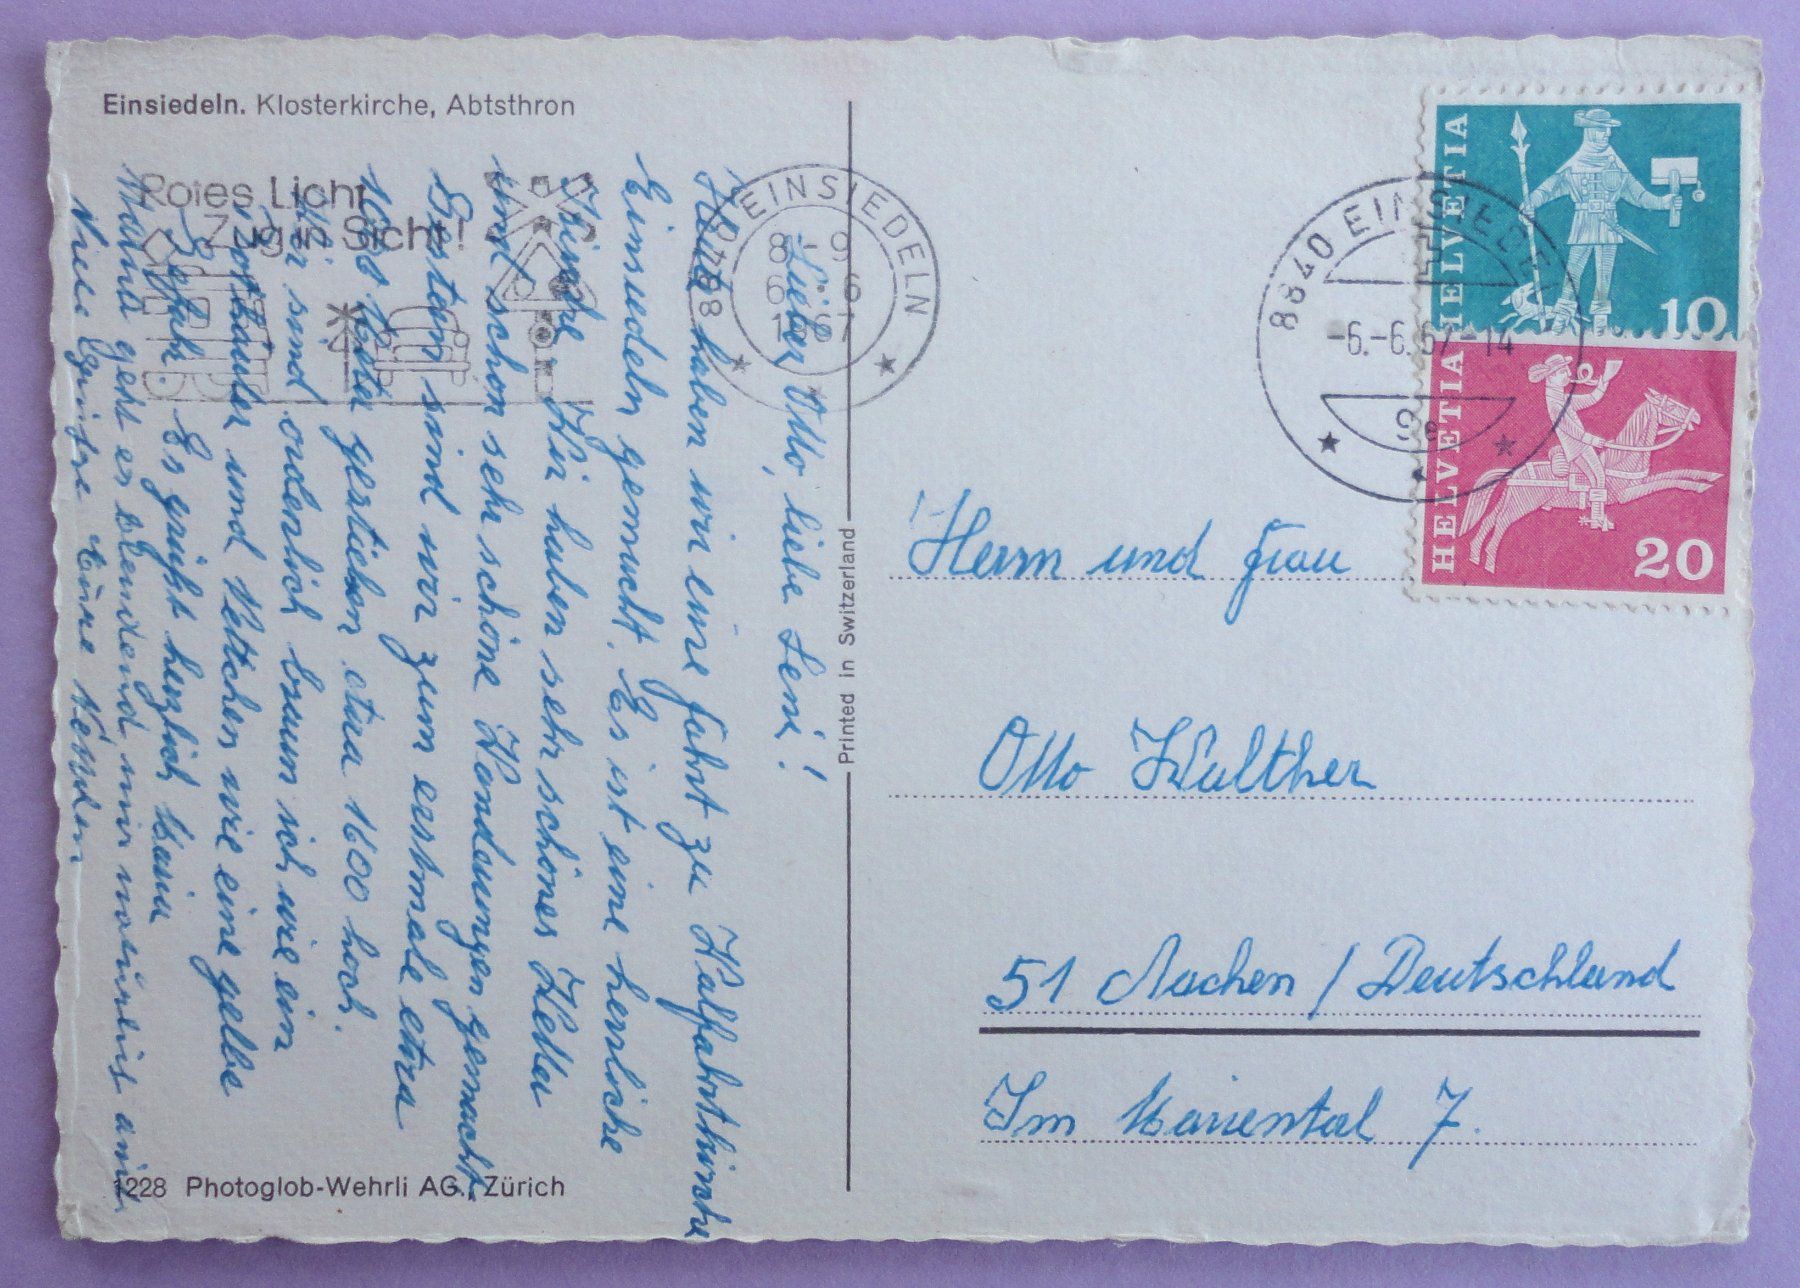 Einsiedeln. Klosterkirche, Abtsthron
Rotes Licht
Zug in Sicht!
8840 EINSIEDELN
8-9
6.-6
1967
8840 EINSIEDELN
-6.-6.67-14
9e
HELVETIA
10
HELVETIA
20
Lieber Otto, liebe Leni!
Heute haben wir eine Fahrt zu Wallfahrtkirche
Einsiedeln gemacht. Es ist eine herrliche
Kirche. Wir haben sehr schönes Wetter
und schon sehr schöne Wandlungen gemacht.
Gestern sind wir zum erstmale etwa
1000 Meter gestiegen etwa 1600 hoch.
Wir sind ordentlich braun ich wie ein
und Vettchen wie eine gelbe
Es grüßt herzlich Maria
Mama geht es blendend, mir natürlich auch.
Viele Grüsse Eure
Printed in Switzerland
Herrn und Frau
Otto Walther
51 Aachen / Deutschland
Im Mariental 7.
1228 Photoglob-Wehrli AG., Zürich